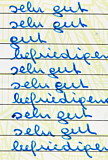 sehr gut
sehr gut
gut
befriedigen
sehr gut
sehr gut
befriedigen
sehr gut
sehr gut
befriedigen